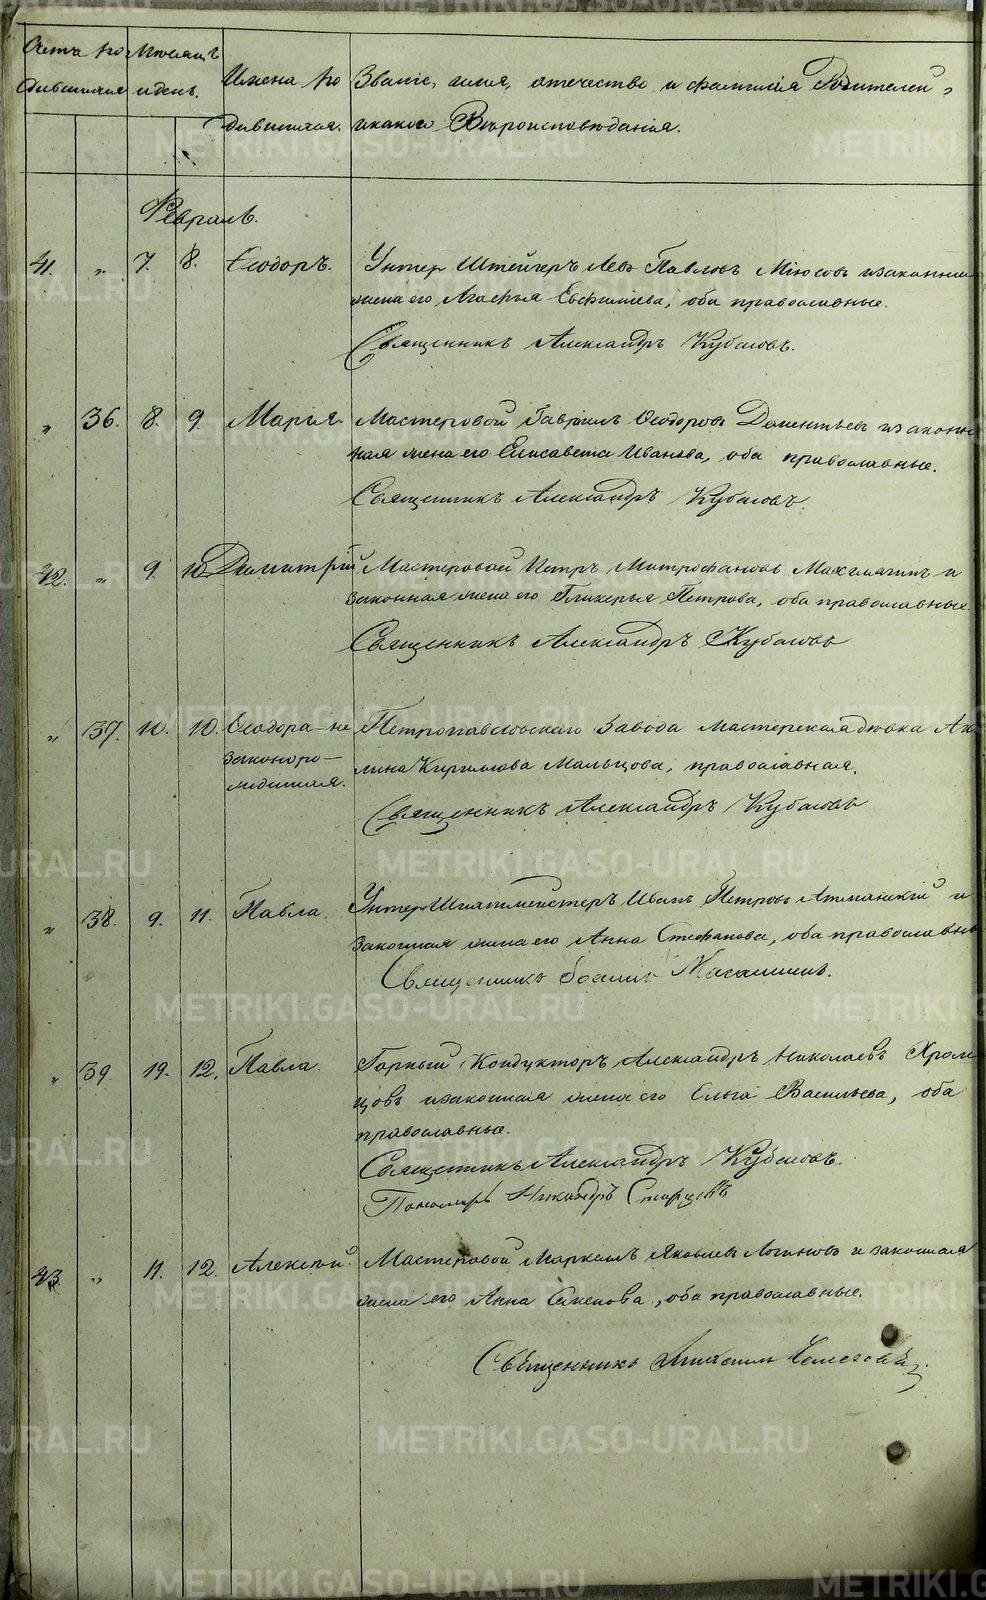 Счетъ ро Мѣсяцъ Имена ро Званіе, имя, отечество и фамилія Родителей,
дившихся и день. дившихся. и какого Вѣроисповѣданія.
Февраль.
41. „ 7. 8. Ѳеодоръ. Унтер Штейгеръ Левъ Павловъ и законная
жена его, Агафья Евфиміева, оба православные.
Священникъ Александръ Кубасовъ.
„ 36. 8. 9. Марія. Мастеровой Гавріилъ Ѳеодоровъ и закон
ная жена его Елисавета Иванова, оба православные.
Священникъ Александръ Кубасовъ.
42. „ 9. 10. Димитрій Мастеровой Петръ Митрофановъ и
законная жена его Гликерья Петрова, оба православные.
Священникъ Александръ Кубасовъ
„ 37. 10. 10. Ѳеодора – не Петропавловскаго Завода мастерская дѣвка Аку
законоро– лина Кирилова Мальцова, православная.
жденная.
Священникъ Александръ Кубасовъ
„ 38. 9. 11. Павла. Унтер Шихтмейстеръ Иванъ Петровъ и
законная жена его Анна Стефанова, оба православны
Священникъ
„ 39. 19. 12. Павла. Горный Кондукторъ Александръ Николаевъ Хром
цовъ и законная жена его Ольга Васильева, оба
православные.
Священникъ Александръ Кубасовъ.
Пономарь Никандръ Старцевъ
43. „ 11. 12. Алексѣй. Мастеровой Маркелъ Яковлевъ Логиновъ и законная
жена его Анна Семенова, оба православные.
Священникъ Михаилъ